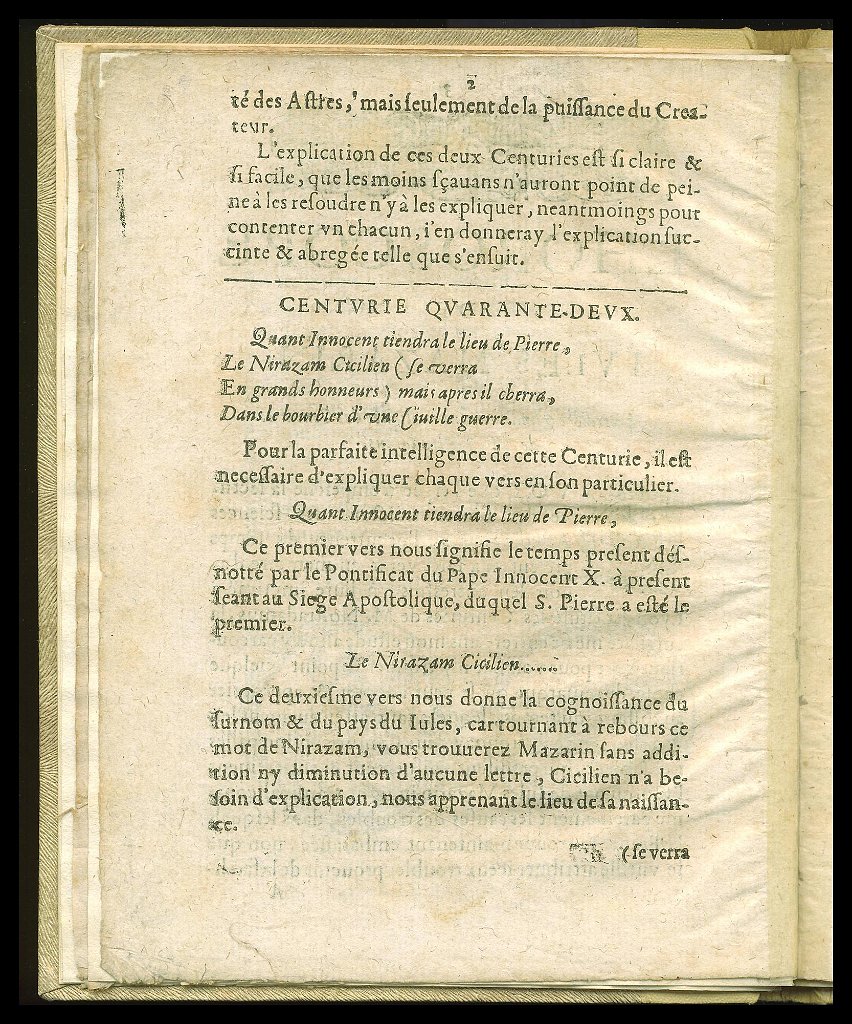 2
té des Astres, mais ſeulement de la puiſſance du Crea-
teur.
L'explication de ces deux Centuries eſt ſi claire &
ſi facile, que les moins ſçauans n'auront point de pei-
ne à les reſoudre n'y à les expliquer, neantmoings pour
contenter vn chacun, i'en donneray l'explication ſuc-
cinte & abregée telle que s'enſuit.
CENTVRIE QVARANTE-DEVX.
Quant Innocent tiendra le lieu de Pierre,
Le Nirazam Cicilien (ſe verra
En grands honneurs) mais apres il cherra,
Dans le bourbier d'vne Ciuille guerre.
Pour la parfaite intelligence de cette Centurie, il eſt
neceſſaire d'expliquer chaque vers en ſon particulier.
Quant Innocent tiendra le lieu de Pierre,
Ce premier vers nous ſignifie le temps preſent déſ-
notté par le Pontificat du Pape Innocent X. à preſent
ſeant au Siege Apoſtolique, duquel S. Pierre a eſté le
premier.
Le Nirazam Cicilien......
Ce deuxieſme vers nous donne la cognoiſſance du
ſurnom & du pays du Iules, car tournant à rebours ce
mot de Nirazam, vous trouuerez Mazarin ſans addi-
tion ny diminution d'aucune lettre, Cicilien n'a be-
ſoin d'explication, nous apprenant le lieu de ſa naiſſan-
ce.
(ſe verra